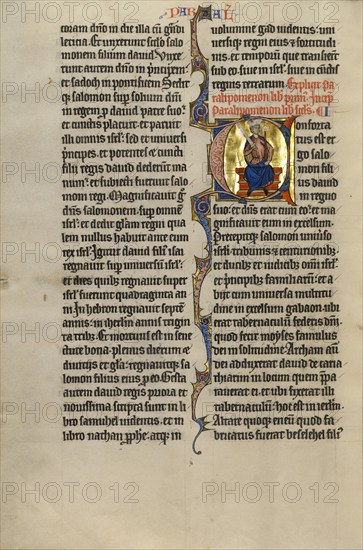 PARAL
coram domino in die illa cum grandi
leticia. Et unxerunt secundo salo
monem filium david. Unxe
runt autem domino in principem:
et sadoch in pontificem. Sedit
que salomon super solium domini
in regem pro david patre suo:
et cunctis placuit: et paruit
illi omnis israel. Sed et universi
principes. et potentes et cuncti
filii regis david dederunt ma
num: et subiecti fuerunt salo
moni regi. Magnificavit ergo dominus
salomonem super omnem
israel: et dedit gloriam regni qua
lem nullus habuit ante eum
rex israel. Igitur david filius isai
regnavit super universum israel:
et dies quibus regnavit super
israel fuerunt quadraginta an
ni. In hebron regnavit septem
annis: in ierusalem annis trigin
ta tribus. Et mortuus est in sene
ctute bona. plenus dierum et
divitiis et gloria: regnavitque sa
lomon filius eius pro eo. Gesta
autem david regis priora et
novissima scripta sunt in li
bro samuel videntis. et in
libro nathan prophete: atque in
volumine gad videntis: uni
versique regni eius et fortitudi
nis. et temporum que transierunt
sub eo: sive in israel. sive in cunctis
regnis terrarum. Explicit pa
ralipomenon liber primus. Incipit
Paralipomenon liber secundus. CI
Conforta
tus est er
go salo
mon fili
us david
in regno
suo: et dominus erat cum eo. et ma
gnificavit eum in excelsum.
Precepitque salomon univer
so israeli. tribunis et centurionibus.
et ducibus et iudicibus omnis israel: et
principibus familiarum: et a
biit cum universa multitu
dine in excelsum gabaon: ubi
erat tabernaculum federis domini.
quod fecit moyses famulus
dei in solitudine. Archam autem
dei adduxerat david de caria
thiarim in locum quem prepa
raverat ei. et ubi fixerat illi
tabernaculum: hoc est in ierusalem.
Altare quoque eneum quod fa
bricatus fuerat beselehel filius